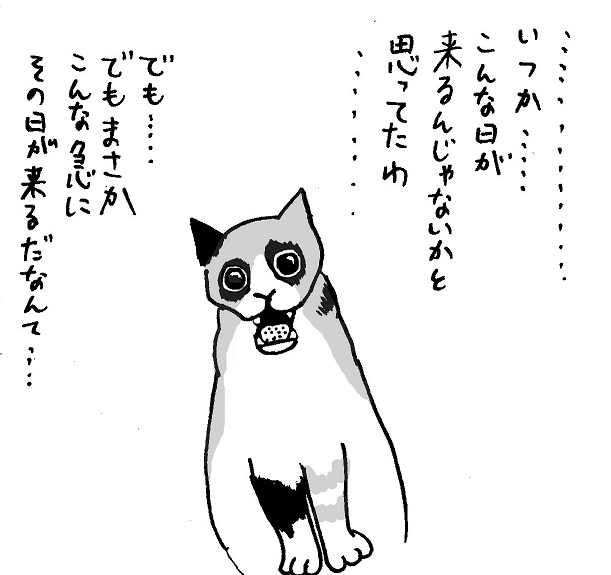 ・・・・・・・・・・・・・・
いつか・・・・・
こんな日が
来るんじゃないかと
思ってたわ
・・・・・・・・・
でも・・・・・
でもまさか
こんな急に
その日が来るだなんて・・・・